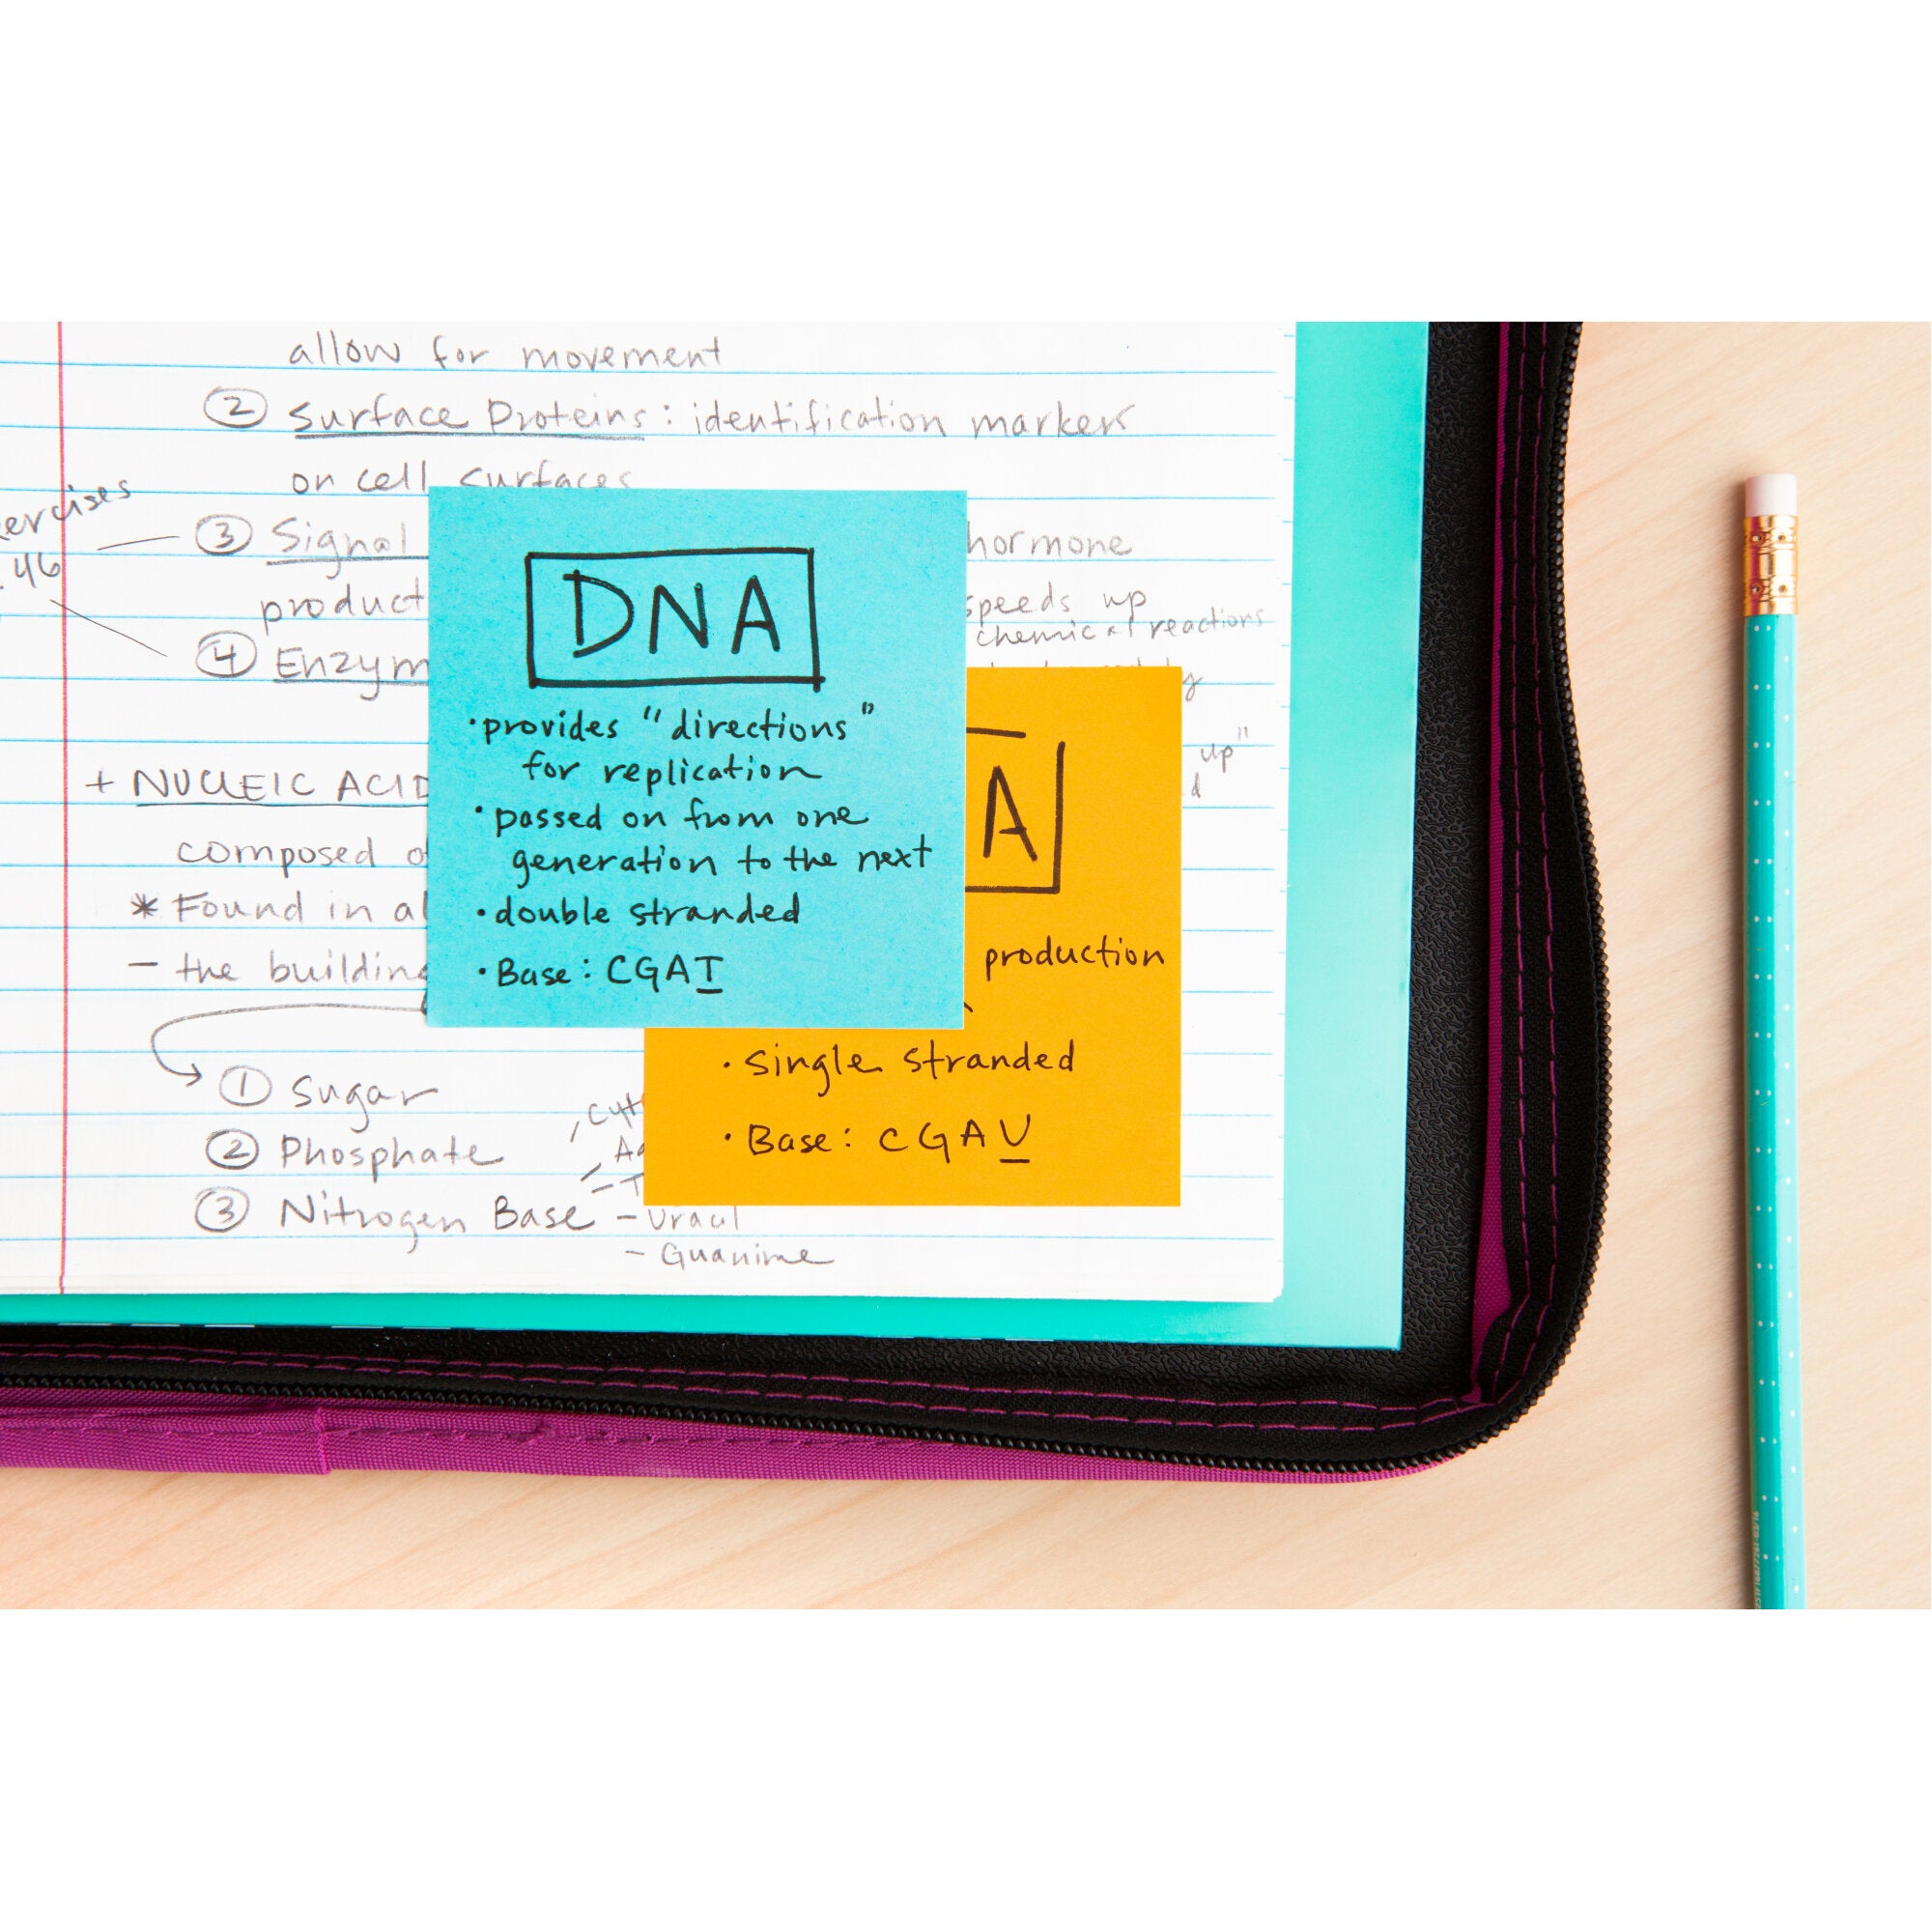 allow for movement
② Surface Proteins: identification markers
on cell surfaces
46
③ Signal
hormone
product
speeds up
chemical reactions
④ Enzym
up"
+ NUCLEIC ACID
composed
* Found in al
- the building
① Sugar
② Phosphate
③ Nitrogen Base - Uracil
- Guanine
DNA
• provides "directions"
for replication
• passed on from one
generation to the next
• double stranded
• Base: CGAT
A
production
• single stranded
• Base: CGAU